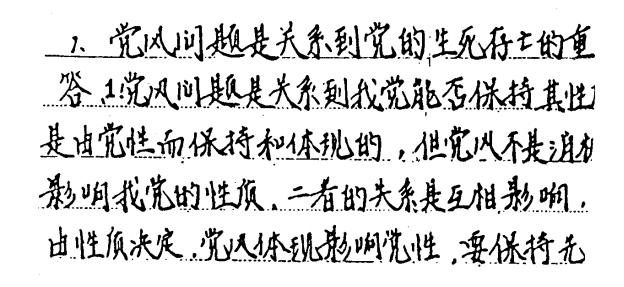 1、党风问题是关系到党的生死存亡的重
答、1.党风问题是关系到我党能否保持其性
是由党性而保持和体现的，但党风不是消极
影响我党的性质。二者的关系是互相影响。
由性质决定，党风体现影响党性，要保持先